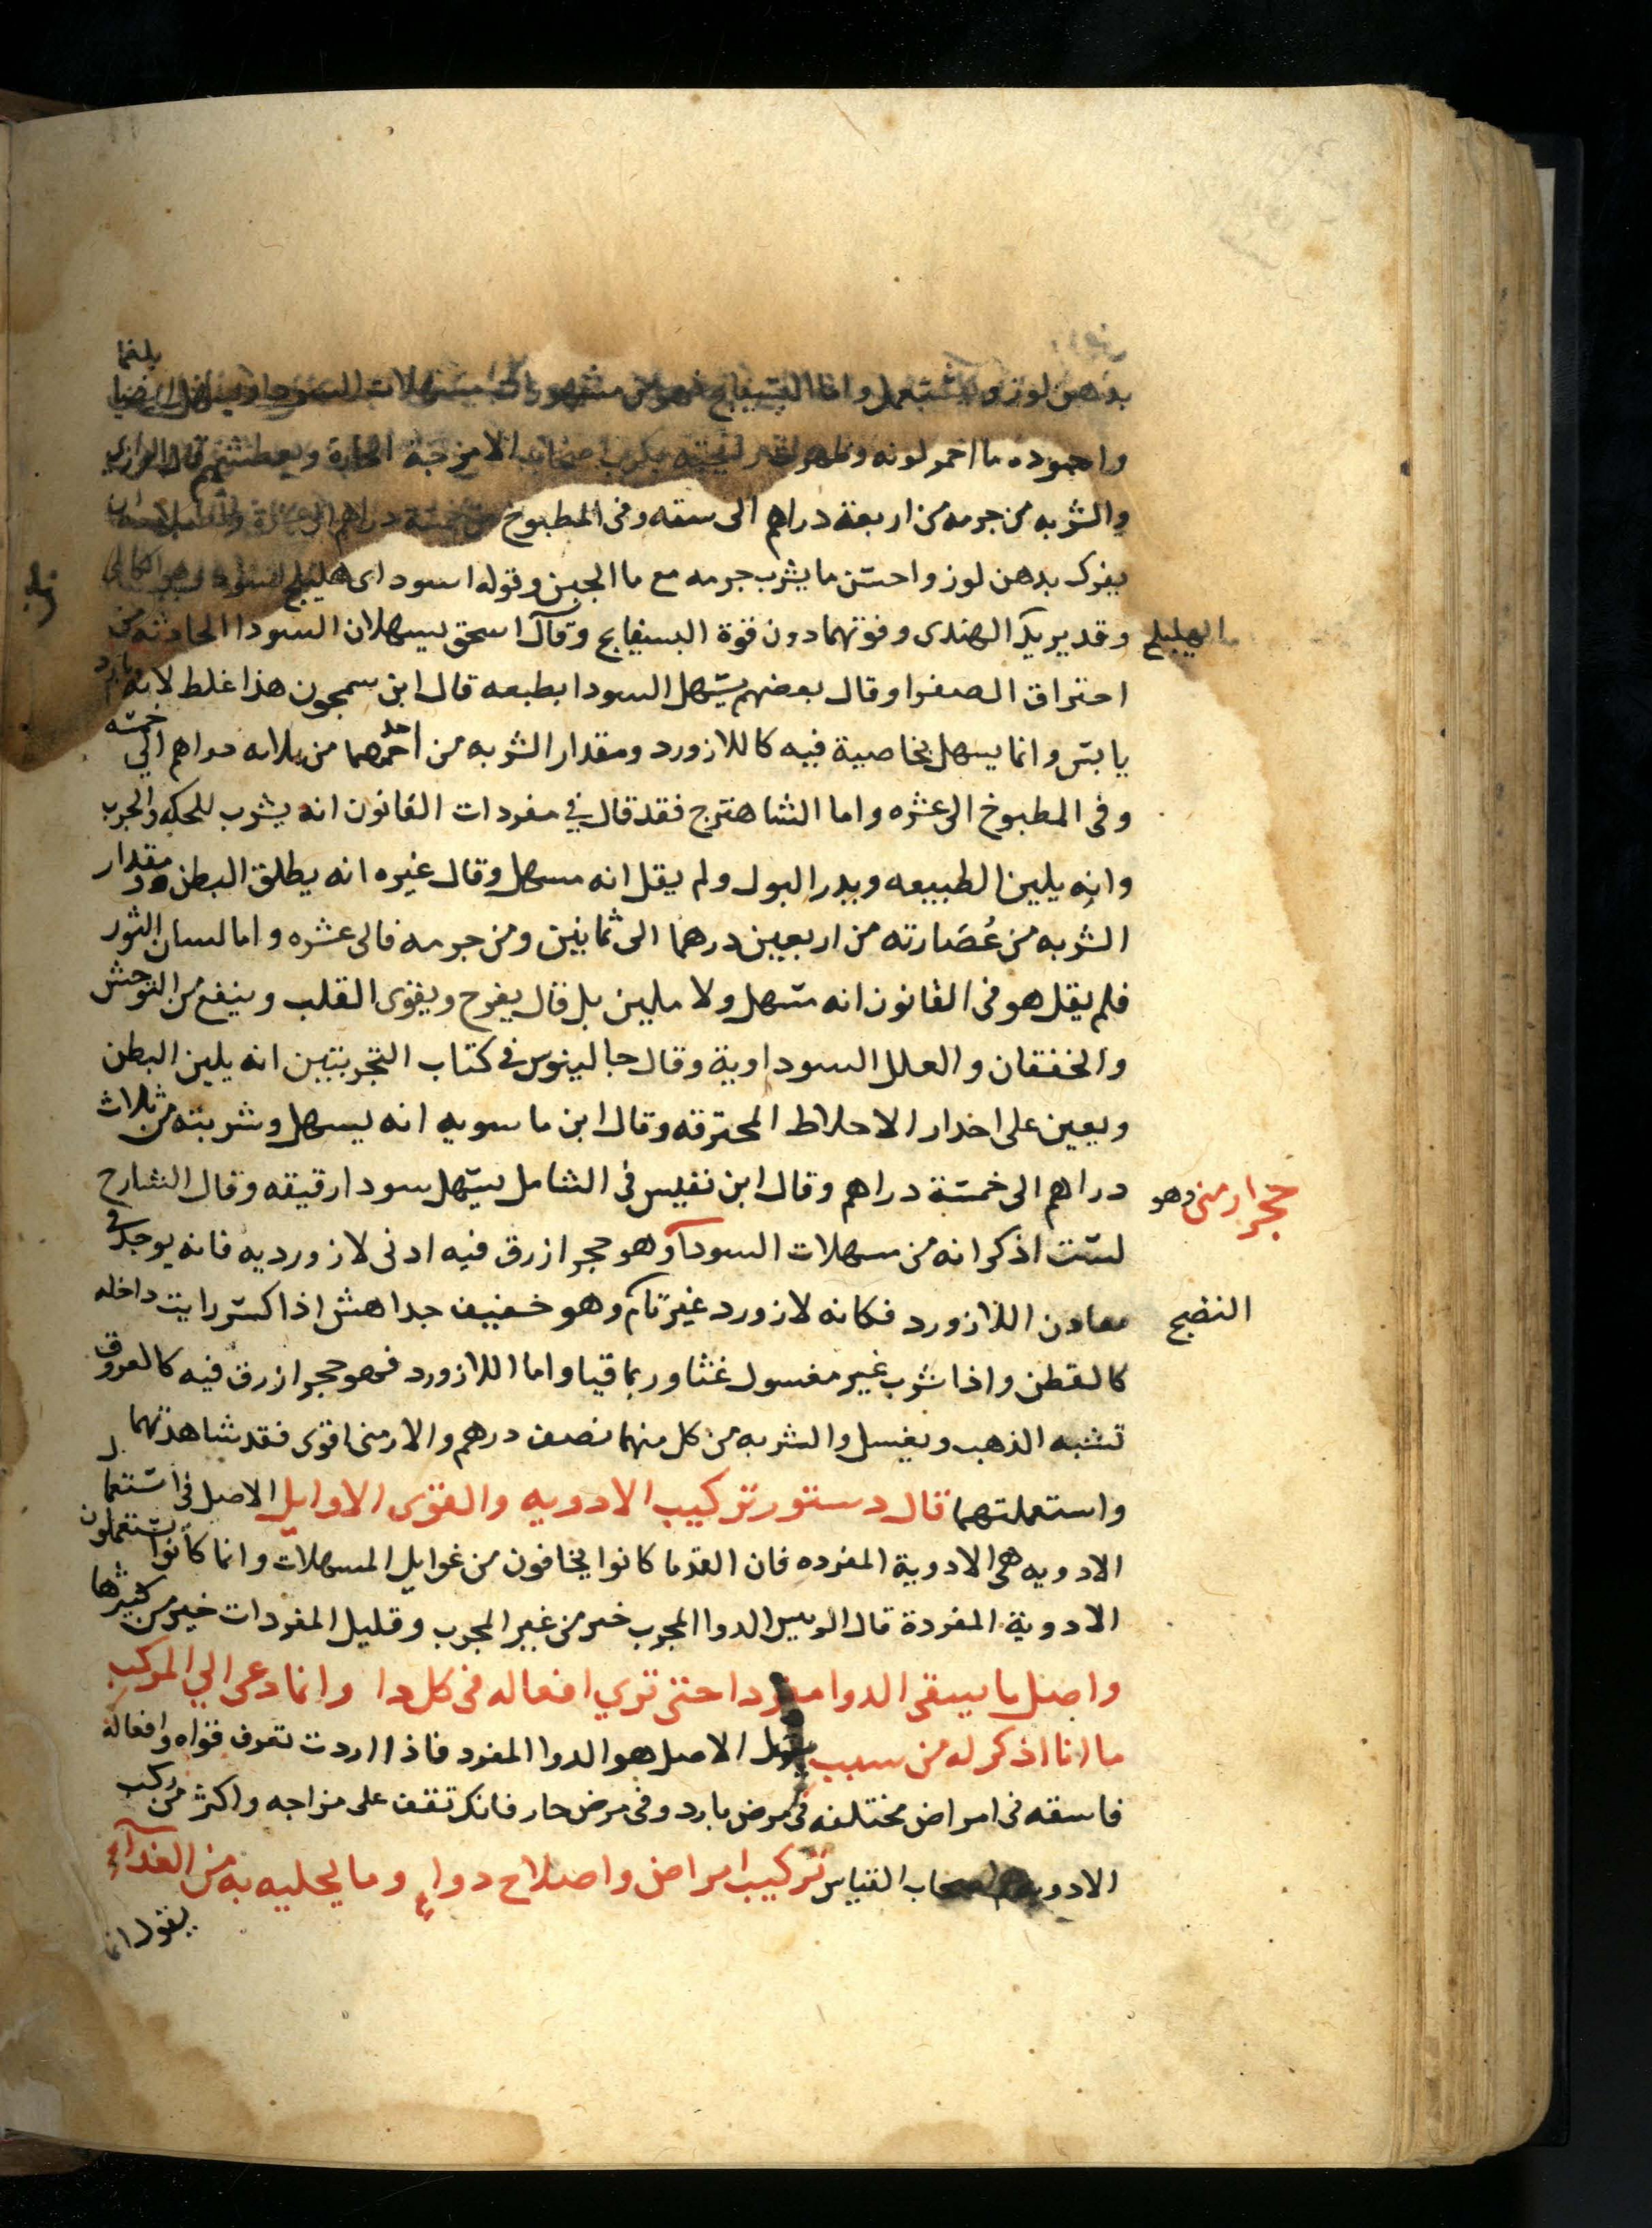 بدهن لوز ويستعمل واما البسفايج فهو من مشهورات مسهلات السودا ويسهل ايضا بلغما
واجوده ما احمر لونه وظهر الامزجة الحارة ويعطش قال الرازي
والشربه من جرمه من اربعة دراهم الى سته وفى المطبوخ من خمسة دراهم الى عشرة
يفرك بدهن لوز واحسن ما يشرب جرمه مع ما الجبن وقوله اسود اى هليلج اسود
الهليلج
وقد يريد الهندى وقوتهما دون قوة البسفايج وقال اسحق يسهلان السودا الحادثه من
احتراق الصفرا وقال بعضهم يسهل السودا بطبعه قال ابن سمجون هذا غلط لانه بارد
يابس وانما يسهل بخاصية فيه كاللازورد ومقدار الشربه من احدهما من ثلاثه دراهم الى خمسه
وفى المطبوخ الى عشره واما الشاهترج فقد قال في مفردات القانون انه يشرب للحكه والجرب
وانه يلين الطبيعه ويدر البول ولم يقل انه مسهل وقال غيره انه يطلق البطن ومقدار
الشربه من عُصَارته من اربعين درهما الى ثمانين ومن جرمه فالى عشره واما لسان الثور
فلم يقل هو فى القانون انه مسهل ولا ملين بل قال يفرح ويقوى القلب وينفع من التوحش
والخفقان والعلل السوداوية وقال جالينوس فى كتاب التجربتين انه يلين البطن
ويعين على احدار الاخلاط المحترقه وقال ابن ماسويه انه يسهل وشربته من ثلاث
دراهم الى خمسة دراهم وقال ابن نفيس فى الشامل يسهل سودا رقيقه وقال الشارح
حجر ارمنى وهو
لست اذكر انه من مسهلات السودآ وهو حجر ازرق فيه ادنى لازورديه فانه يوجد فى
معادن اللازورد فكانه لازورد غير تام وهو خفيف جدا هش اذا كسر رايت داخله
النضيج
كالقطن واذا شرب غير مغسول غثا وربما قيا واما اللازورد فهو حجر ازرق فيه كالعروق
تشبه الذهب ويغسل والشربه من كل منهما نصف درهم والارمنى اقوى فقد شاهدتهما
واستعملتهما قال دستور تركيب الادويه والقوى الاوايل الاصل فى استعمال
الادويه هى الادوية المفرده فان القدما كانوا يخافون من غوايل المسهلات وانما كانوا يستعملون
الادوية المفردة قال الرييس الدوا المجرب خير من غير المجرب وقليل المفردات خير من كثيرها
واصل ما يسقى الدوا مفردا حتى ترى افعاله فى كل دا وانما دعى الي المركب
ما انا اذكر له من سبب يقول الاصل هو الدوا المفرد فاذا اردت تعرف قواه وافعاله
فاسقه فى امراض مختلفه فى مرض بارد وفى مرض حار فانك تقف على مزاجه واكثر من ركب
الادويه اصحاب القياس تركيب امراض واصلاح دواء وما يحليه به من الغدآء
يقول انما